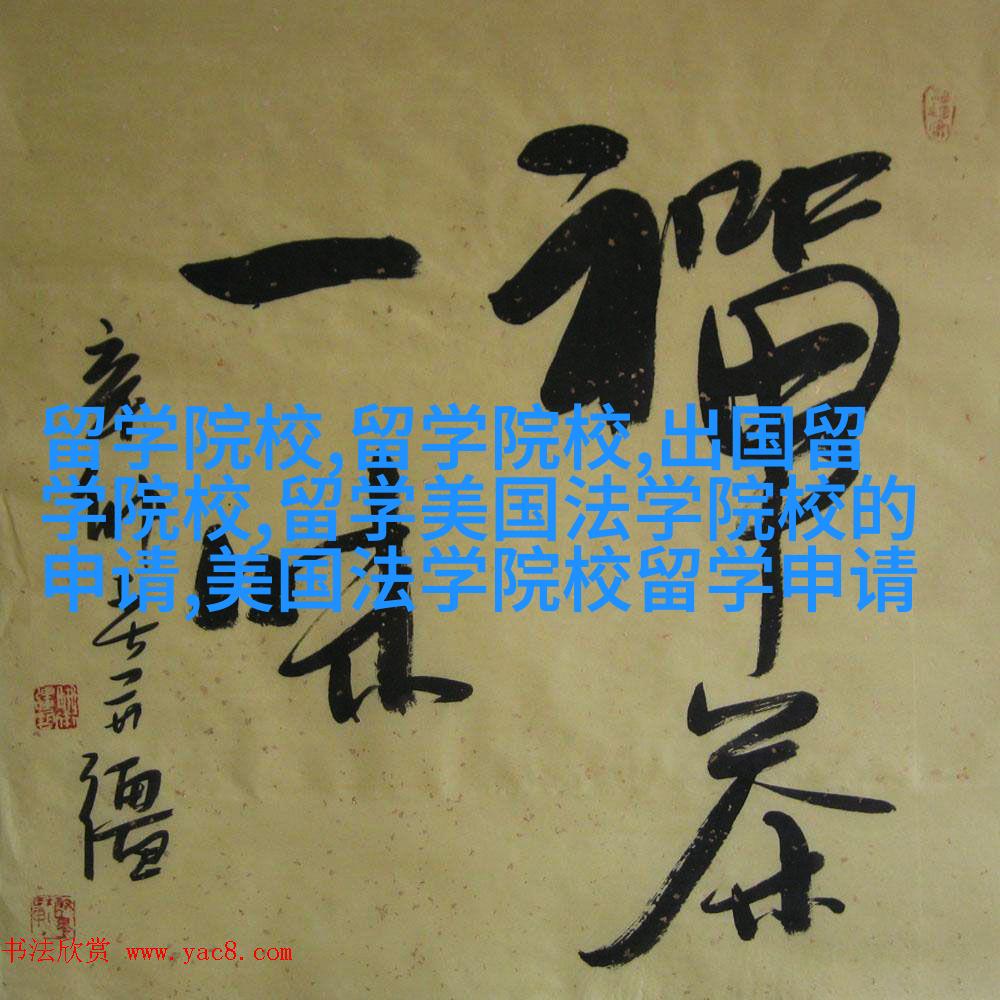 禪茶
一味
留学院校,留学院校,出国留
学院校,留学美国法学院校的
申请,美国法学院校留学申请
书法欣赏 www.yac8.com